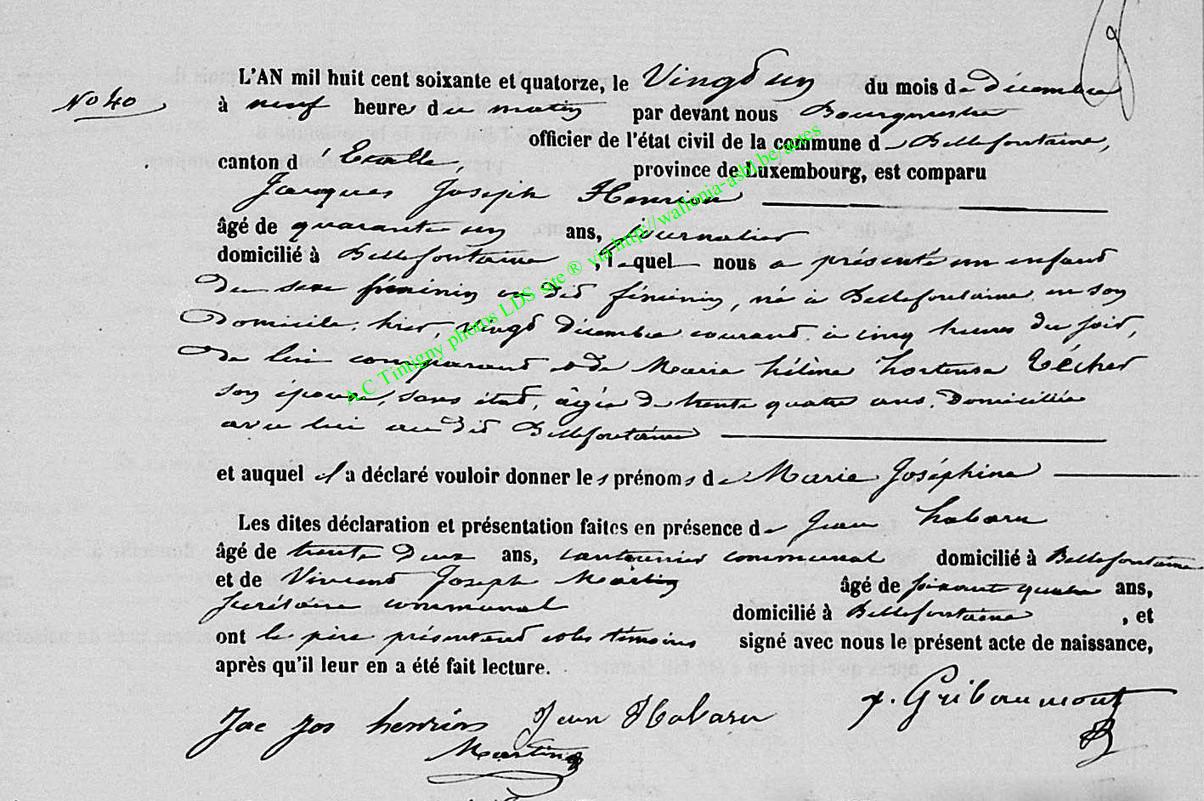 L'AN mil huit cent soixante et quatorze, le Vingt un du mois de décembre
No 40
à neuf heures du matin par devant nous Bourgmestre
officier de l'état civil de la commune de Bellefontaine,
canton d'Etalle, province de Luxembourg, est comparu
Jacques Joseph Henrion
âgé de quarante un ans, journalier
domicilié à Bellefontaine, lequel nous a présenté un enfant
du sexe féminin, né à Bellefontaine en son
domicile, hier, vingt décembre courant à cinq heures du soir,
de lui comparant et de Marie hélène hortense Técher
son épouse, sans état, âgée de trente quatre ans, domiciliée
avec lui au dit Bellefontaine
et auquel il a déclaré vouloir donner les prénoms de Marie Joséphine
Les dites déclaration et présentation faites en présence de Jean habaru
âgé de trente deux ans, cantonnier communal domicilié à Bellefontaine
et de Vincent Joseph Martin âgé de soixante quatre ans,
secrétaire communal domicilié à Bellefontaine, et
ont le père présentant et les témoins signé avec nous le présent acte de naissance,
après qu'il leur en a été fait lecture.
Jac Jos henrion Jean Habaru J. Gribaumont
Martin
A.C Tintigny photos LDS site ® via http://wallonia-asbl.be/actes